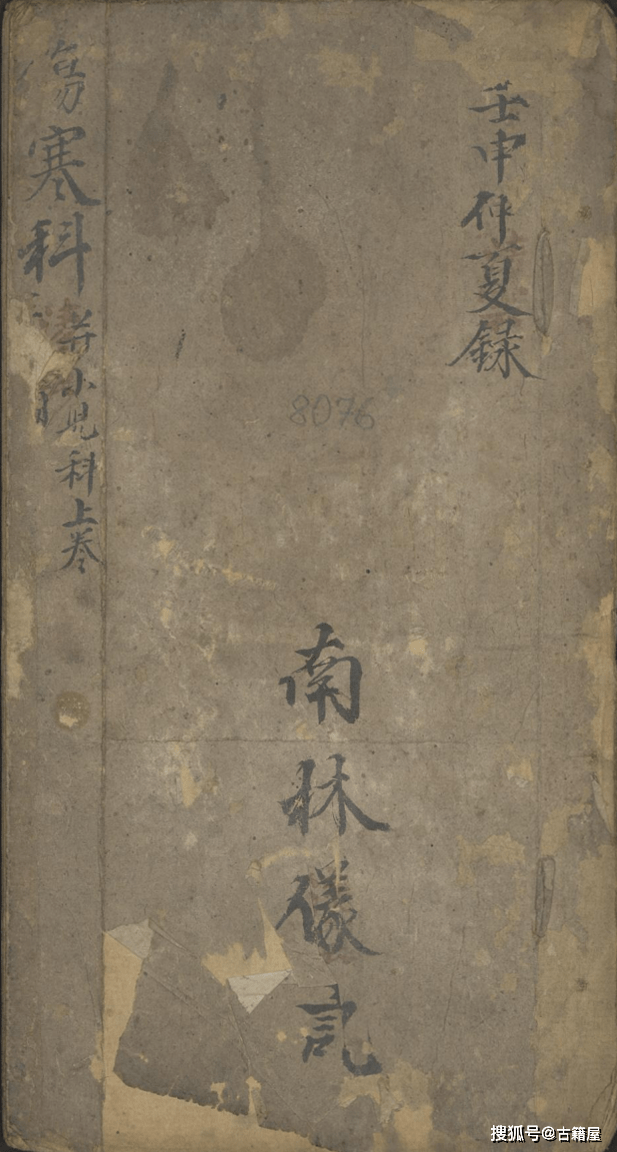 壬申仲夏録
傷寒科
并小児科上巻
8076
南林儀記
搜狐号@古籍屋